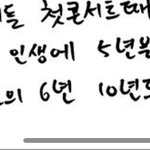 들 첫콘서트때
인생에 5년
의 6년 10년